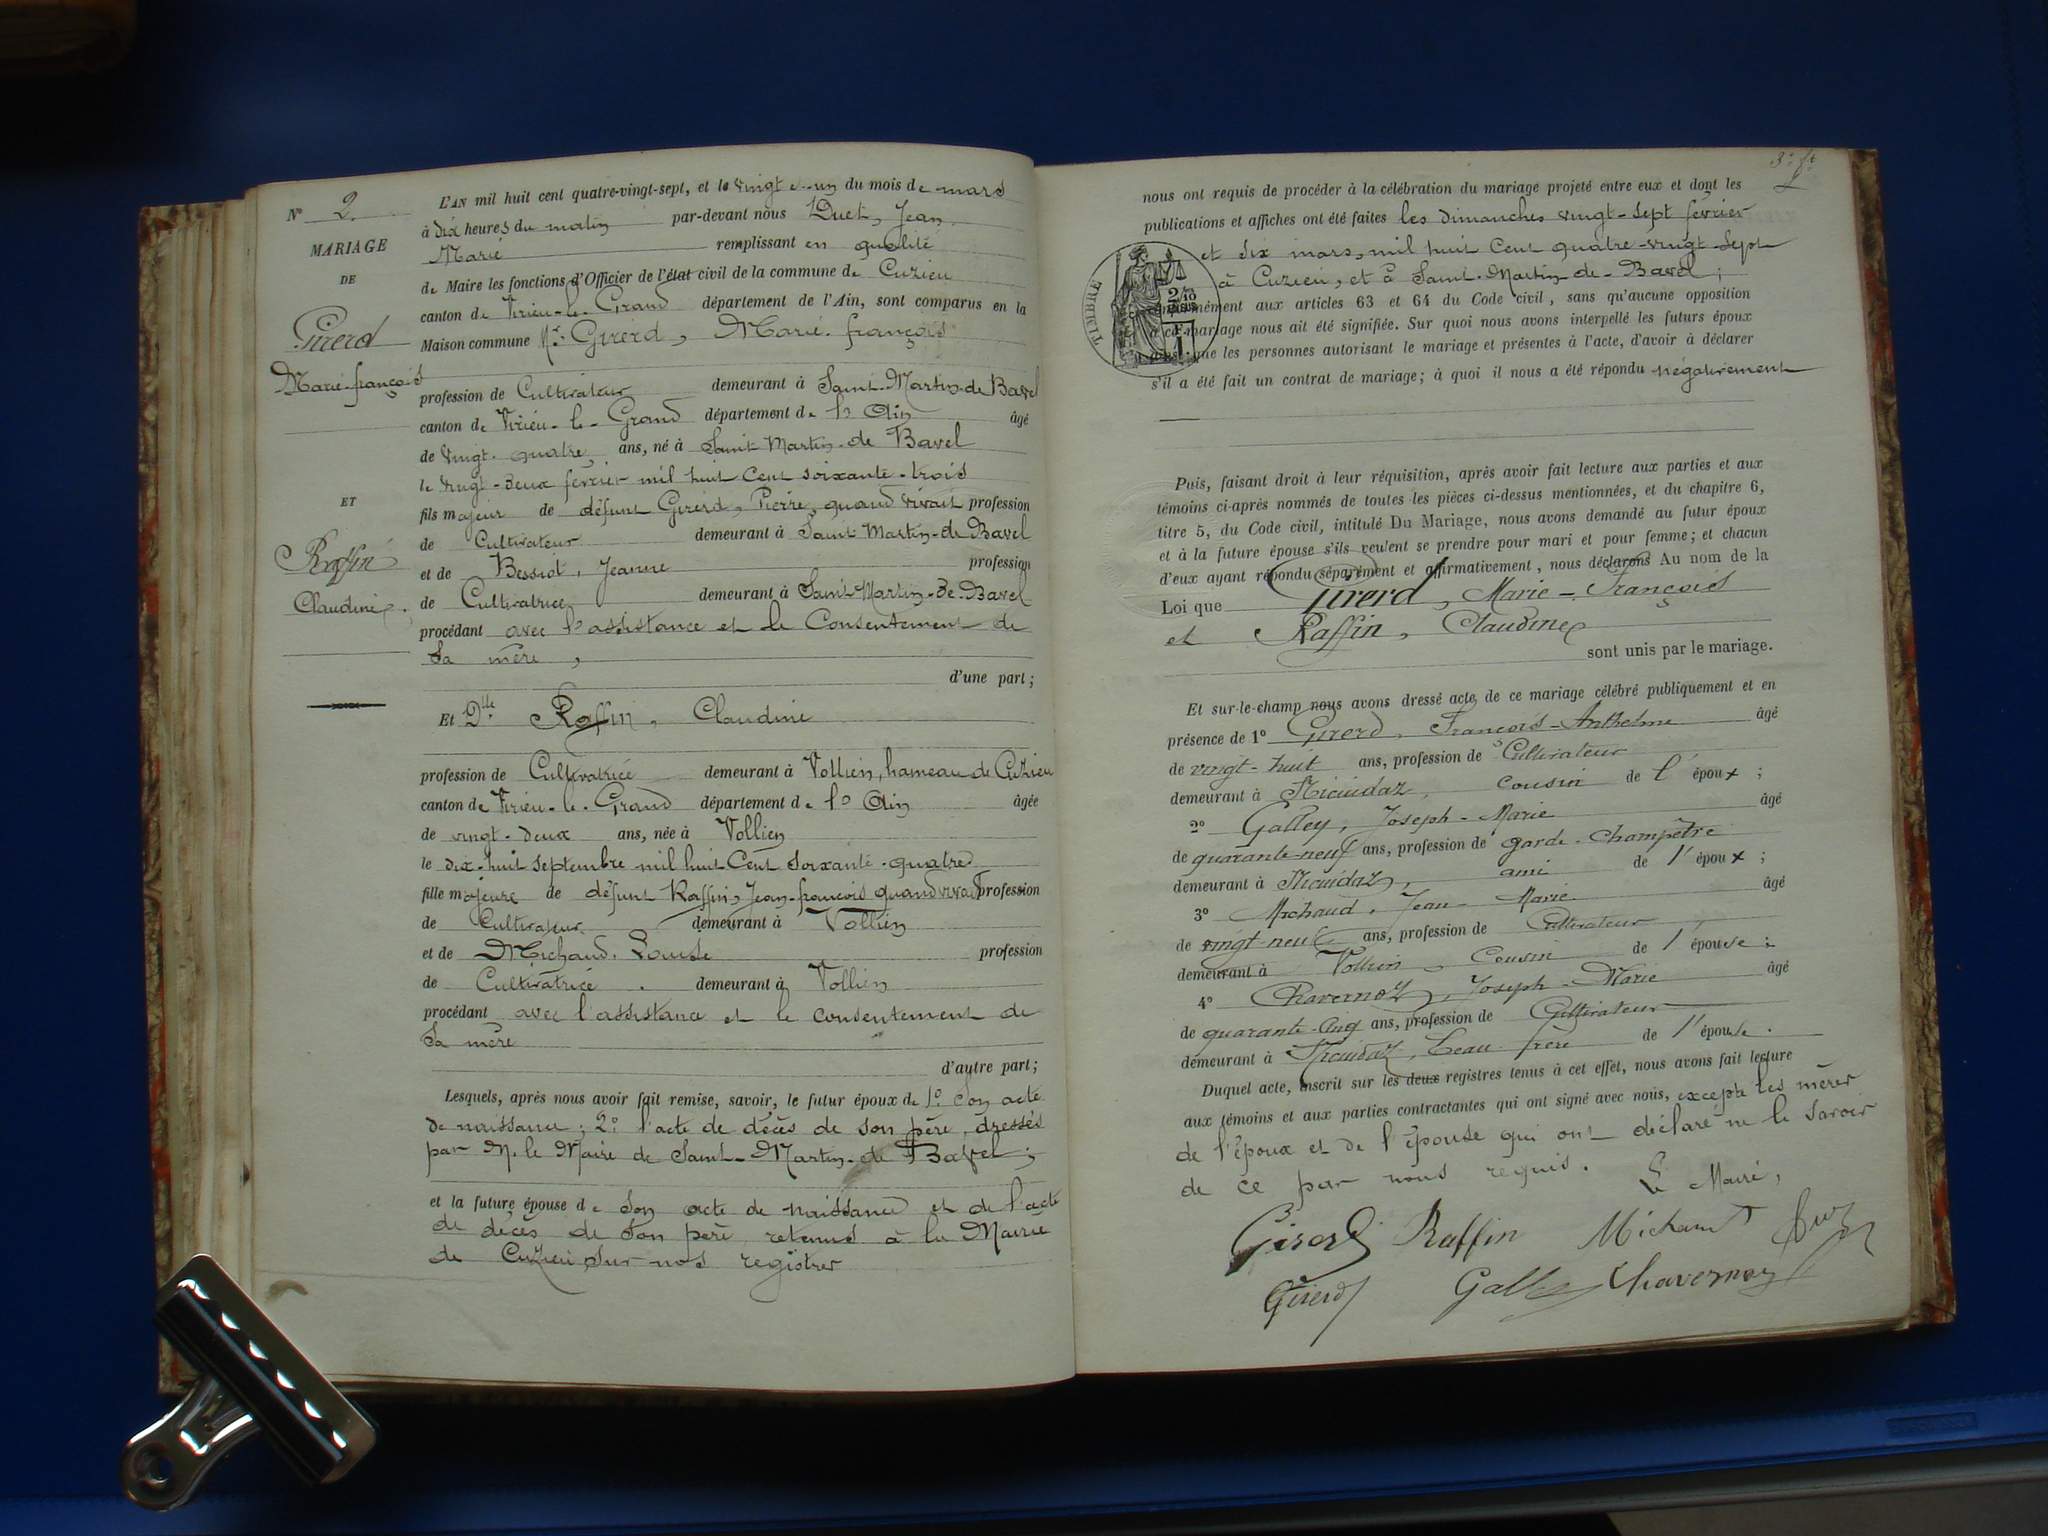 N° 2.
MARIAGE
DE
Girerd
Marie-françois
ET
Raffin
Claudine
L'AN mil huit cent quatre-vingt-sept, et le vingt-un du mois de mars
à dix heures du matin par-devant nous Duet, Jean
Marie remplissant en qualité
de Maire les fonctions d'Officier de l'état civil de la commune de Cuzieu
canton de Virieu-le-Grand département de l'Ain, sont comparus en la
Maison commune Mr. Girerd, Marie-françois
profession de Cultivateur demeurant à Saint-Martin-de Bavel
canton de Virieu-le-Grand département de l'Ain âgé
de vingt-quatre ans, né à Saint Martin-de Bavel
le vingt-deux février mil huit cent soixante-trois
fils majeur de défunt Girerd, Pierre, quand vivait profession
de Cultivateur demeurant à Saint Martin-de Bavel
et de Bessiot, Jeanne profession
de Cultivatrice demeurant à Saint-Martin-de-Bavel
procédant avec l'assistance et le Consentement de
sa mère,
d'une part;
Et Dlle Raffin, Claudine
profession de Cultivatrice demeurant à Vollien, hameau de Cuzieu
canton de Virieu-le-Grand département de l'Ain âgée
de vingt-deux ans, née à Vollien
le dix-huit septembre mil huit Cent soixante-quatre
fille majeure de défunt Raffin, Jean-françois quand vivait profession
de Cultivateur demeurant à Vollien
et de Michaud, Louise profession
de Cultivatrice demeurant à Vollien
procédant avec l'assistance et le consentement de
sa mère
d'autre part;
Lesquels, après nous avoir fait remise, savoir, le futur époux de 1° son acte
de naissance; 2° l'acte de décès de son père, dressés
par M. le Maire de Saint-Martin-de Bavel;
et la future épouse de son acte de naissance et de l'acte
de décès de son père retenus à la Mairie
de Cuzieu sur nos registres
nous ont requis de procéder à la célébration du mariage projeté entre eux et dont les
publications et affiches ont été faites les dimanches vingt-sept février
et six mars, mil huit Cent quatre-vingt-sept
à Cuzieu, et à Saint-Martin-de-Bavel;
TIMBRE
conformément aux articles 63 et 64 du Code civil, sans qu'aucune opposition
à ce mariage nous ait été signifiée. Sur quoi nous avons interpellé les futurs époux
ainsi que les personnes autorisant le mariage et présentes à l'acte, d'avoir à déclarer
s'il a été fait un contrat de mariage; à quoi il nous a été répondu négativement
Puis, faisant droit à leur réquisition, après avoir fait lecture aux parties et aux
témoins ci-après nommés de toutes les pièces ci-dessus mentionnées, et du chapitre 6,
titre 5, du Code civil, intitulé Du Mariage, nous avons demandé au futur époux
et à la future épouse s'ils veulent se prendre pour mari et pour femme; et chacun
d'eux ayant répondu séparément et affirmativement, nous déclarons Au nom de la
Loi que Girerd, Marie-François
et Raffin, Claudine
sont unis par le mariage.
Et sur-le-champ nous avons dressé acte de ce mariage célébré publiquement et en
présence de 1° Girerd, François-Anthelme âgé
de vingt-huit ans, profession de Cultivateur
demeurant à cousin de l'époux;
2° Galley, Joseph-Marie âgé
de quarante-neuf ans, profession de garde-champêtre
demeurant à ami de l'époux;
3° Michaud, Jean Marie âgé
de vingt-neuf ans, profession de Cultivateur
demeurant à Vollien, Cousin de l'épouse;
4° Chavernoz, Joseph-Marie âgé
de quarante-cinq ans, profession de Cultivateur
demeurant à beau-frère de l'épouse.
Duquel acte, inscrit sur les deux registres tenus à cet effet, nous avons fait lecture
aux témoins et aux parties contractantes qui ont signé avec nous, excepté les mères
de l'époux et de l'épouse qui ont déclaré ne le savoir
de ce par nous requis. Le Maire,
Girerd Raffin Michaud
Girerd Galley Chavernoz